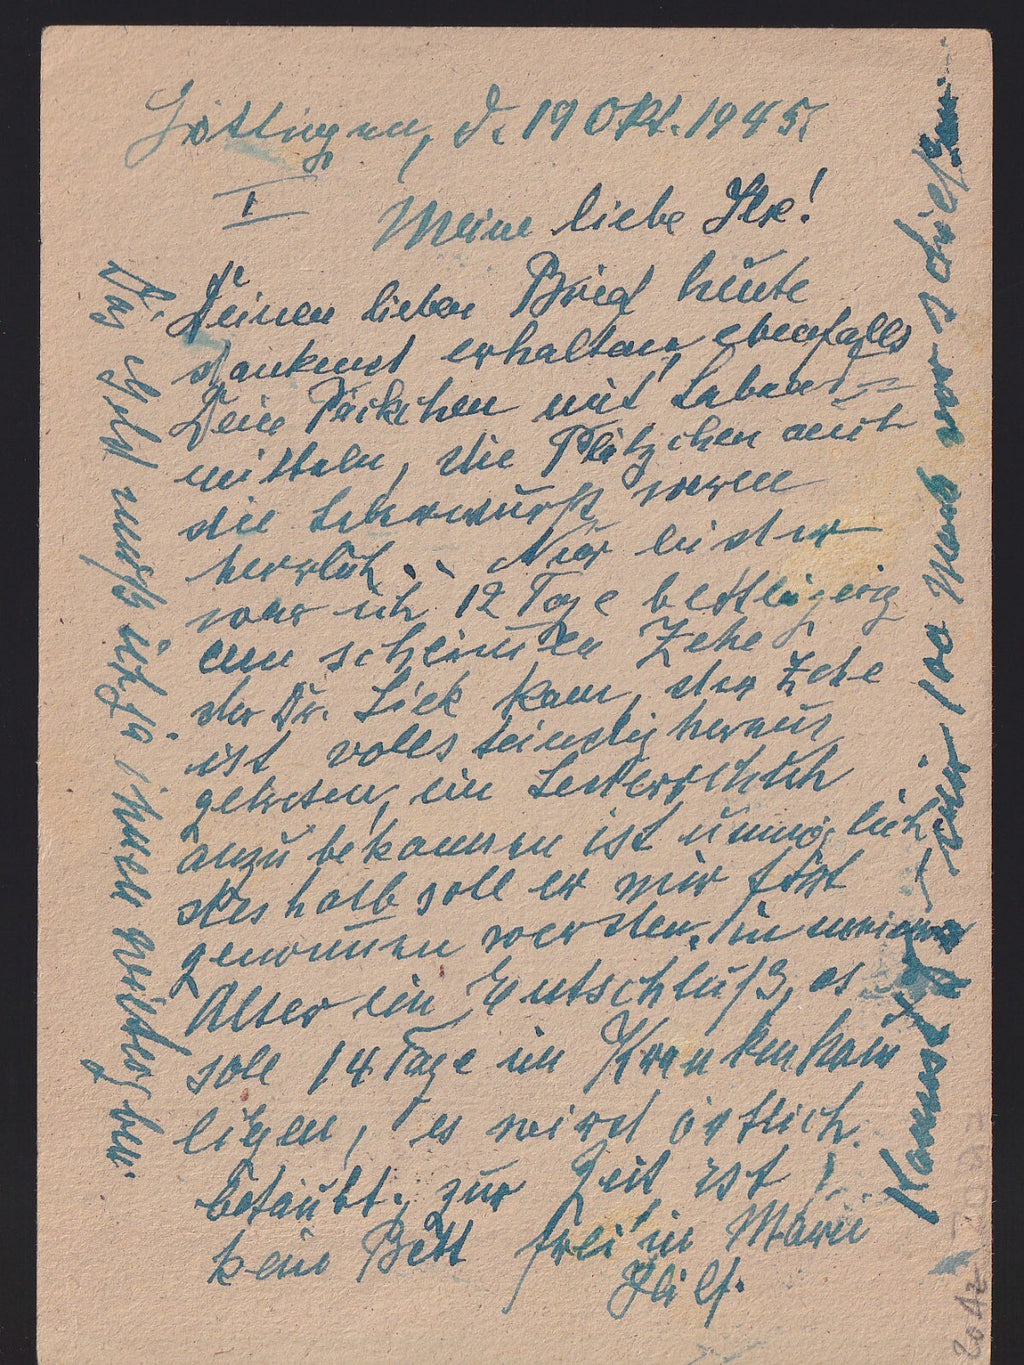 Göttingen, d. 19 Okt. 1945.
I
Meine liebe Ilse!
Deinen lieben Brief heute
dankend erhalten, ebenfalls
Dein Päckchen mit Lebens=
mitteln, die Plätzchen auch
die Leberwurst waren
herrlich. Nur leider
war ich 12 Tage bettlägerig
am schlimmen Zehe
der Dr. Lick kam, der Zehe
ist vollständig heraus
getreten, ein Lederschuh
anzu bekommen ist unmöglich,
deshalb soll er mir fort
genommen werden. in meinem
Alter ein Entschluß, es
soll 14 Tage im Krankenhaus
liegen, es wird örtlich
betäubt. zur Zeit ist
kein Bett frei in Maria
Hilf.
Das Geld muß ich ja ihnen wiedergeben.
Kannst Du mir 100 Mark
20 Az